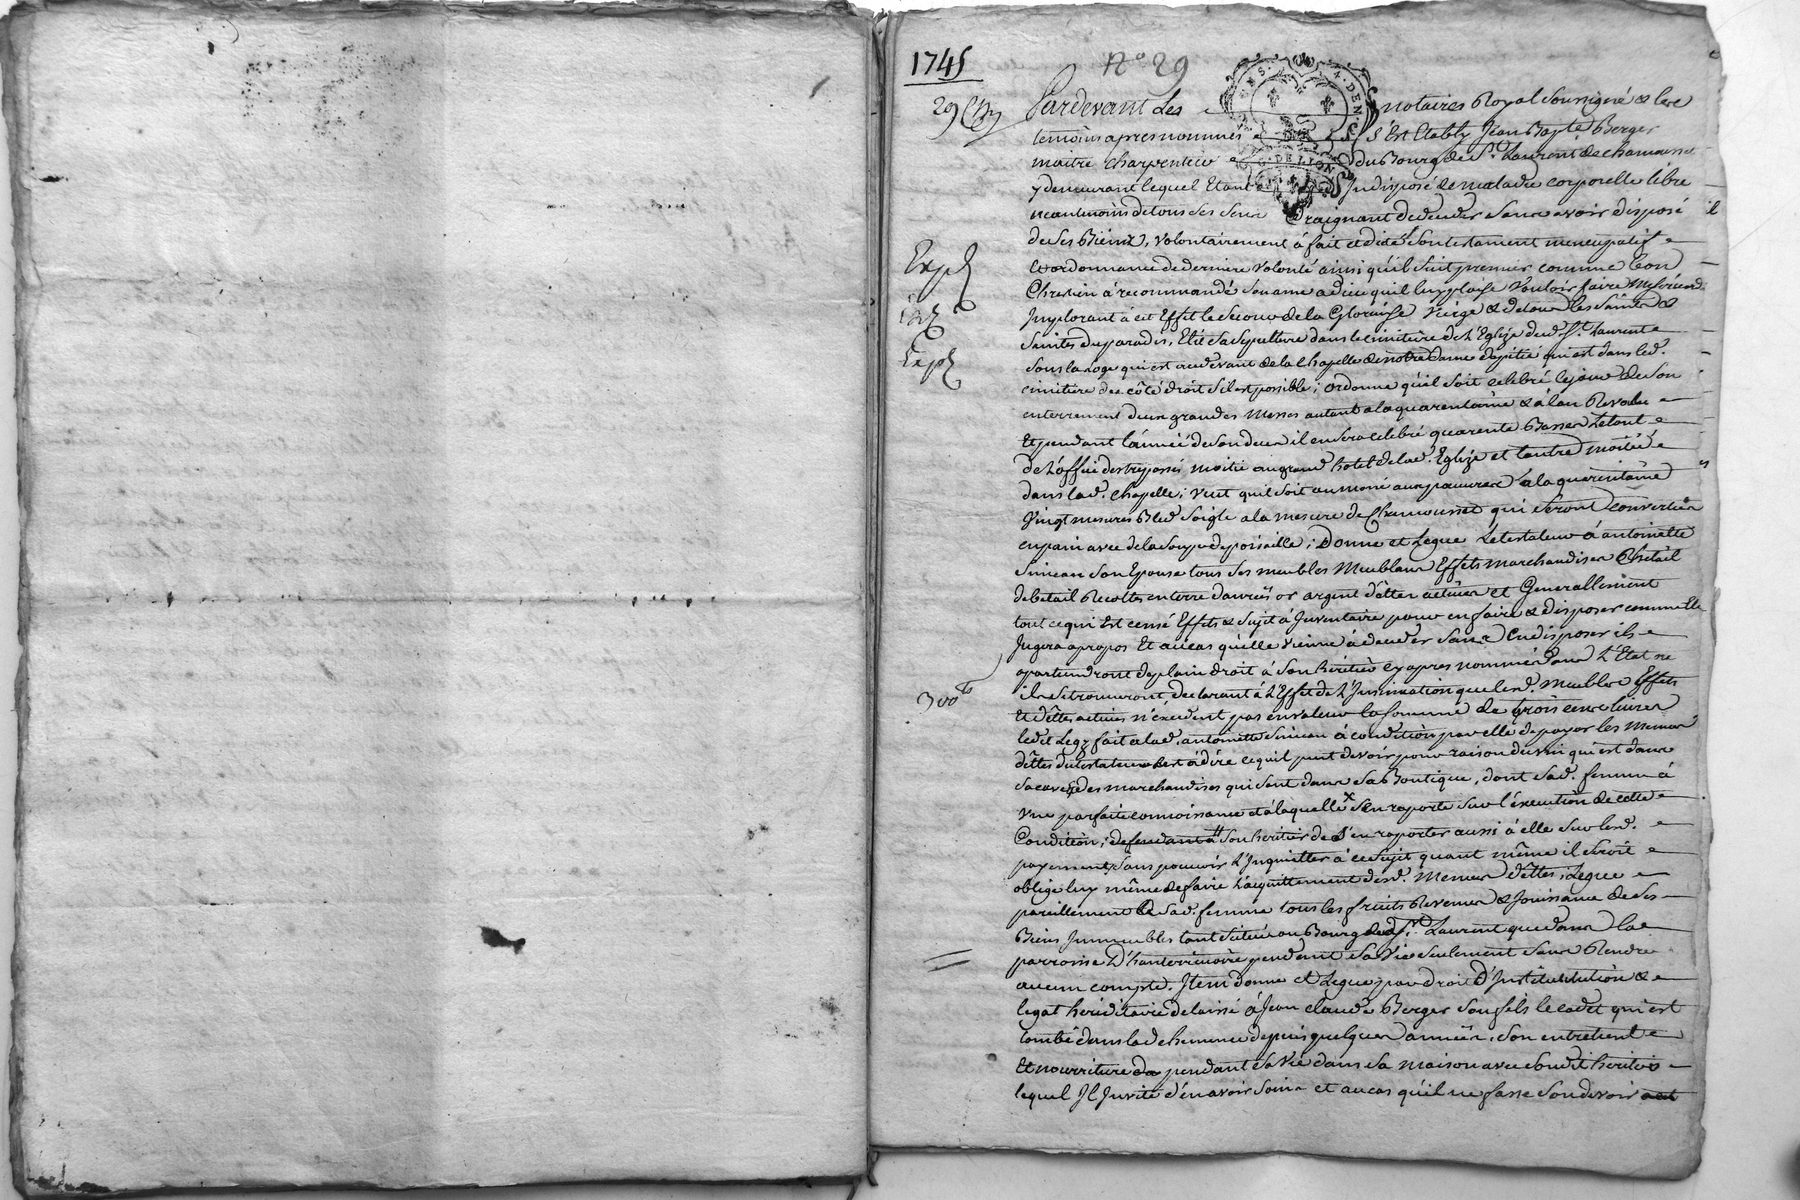 1745
N° 29
29 
Pardevant Les notaires Royal Soussigné & les
temoins apres nommés S'Est Etably Jean Bapte Berger
maitre charpentier du Bourg de St. Laurent de chamousset
y demeurant lequel Etant Indisposé de maladie corporelle libre
neantmoins de tous ses sens Craignant de deceder sans avoir disposé
de ses Biens, volontairement à fait et dicté son testament nuncupatif
et ordonnance de derniere volonté ainsi qu'il suit premier comme bon
Chretien à recommandé son ame a dieu qu'il luy plaise vouloir faire misericorde
Implorant à cet Effet le secours de la Glorieuse vierge & de tous les Saints &
Saintes du paradis, Elit sa sepulture dans le cimitiere de L'Eglize dud. St. Laurent
sous la loge qui est au devant de la Chapelle de notre dame de pitié qui est dans led.
cimitiere du côté droit s'il est possible; ordonne qu'il soit celebré le jour de son
enterrement deux grandes Messes autant a la quarentaine & à l'an Revolu
Et pendant l'année de son deces il en sera celebré quarente Basses Le tout
de L'office des trepassés moitié au grand hotel de lad. Eglize et l'autre moitié
dans lad. chapelle; veut qu'il soit aumoné aux pauvres a la quarentaine
Vingt mesures Bled Soigle a la mesure de Chamousset qui seront converties
en pain avec de la soupe ; Donne et Legue Le testateur à antoinette
Simean son Epouse tous ses meubles Meublans Effets marchandises
de betail Recoltes en terre danrées or argent dettes actives et Generallement
tout ce qui Est censé Effets & sujet à Inventaire pour en faire & disposer comme Elle
Jugera apropos Et au cas qu'elle vienne à deceder sans en disposer ils
apartiendront de plain droit à son heritier cy apres nommé dans L'Etat
300
ils se trouveront declarant à L'Effet de L'Insinuation que lesd. Meubles Effets
Et dettes actives n'excedent pas en valeur la somme de trois cens livres
ledit Legz fait a lad. antoinette Simean à condition par elle de payer les Menues
dettes du testateur c'est à dire ce qu'il peut devoir pour raison du vin qui est dans
sa cave & des marchandises qui sont dans sa Boutique, dont sad. femme à
une parfaite connoissance et à laquelle x s'en raporte sur l'éxecution de cette
Condition; defendant à son heritier de s'en raporter aussi à elle sur lesd.
payements sans pouvoir L'Inquietter à ce sujet quant même il seroit
obligé luy même de faire L'acquittement desd. Menues dettes; Legue
pareillement à sad. femme tous les fruits Revenus & Jouissance de ses
Biens Immeubles tant situés au Bourg dud. St. Laurent que dans la
parroisse D'hauterivoire pendant sa vie seulement sans Rendre
aucun compte. Item donne et Legue par droit D'Institution &
legat hereditaire delaissé à Jean claude Berger son fils le cadet qui est
tombé dans la demence depuis quelques années, son entretient
Et nourriture pendant sa vie dans sa maison avec sondit heritier
lequel Il Invite d'en avoir soin et au cas qu'il ne fasse son devoir